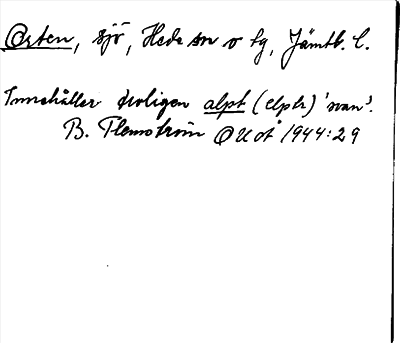 Orten, sjö, Hede sn o tg, Jämtl. l.
Innehåller troligen alpt (elptr) 'svan'.
B. Flemström OUOÅ 1944:29